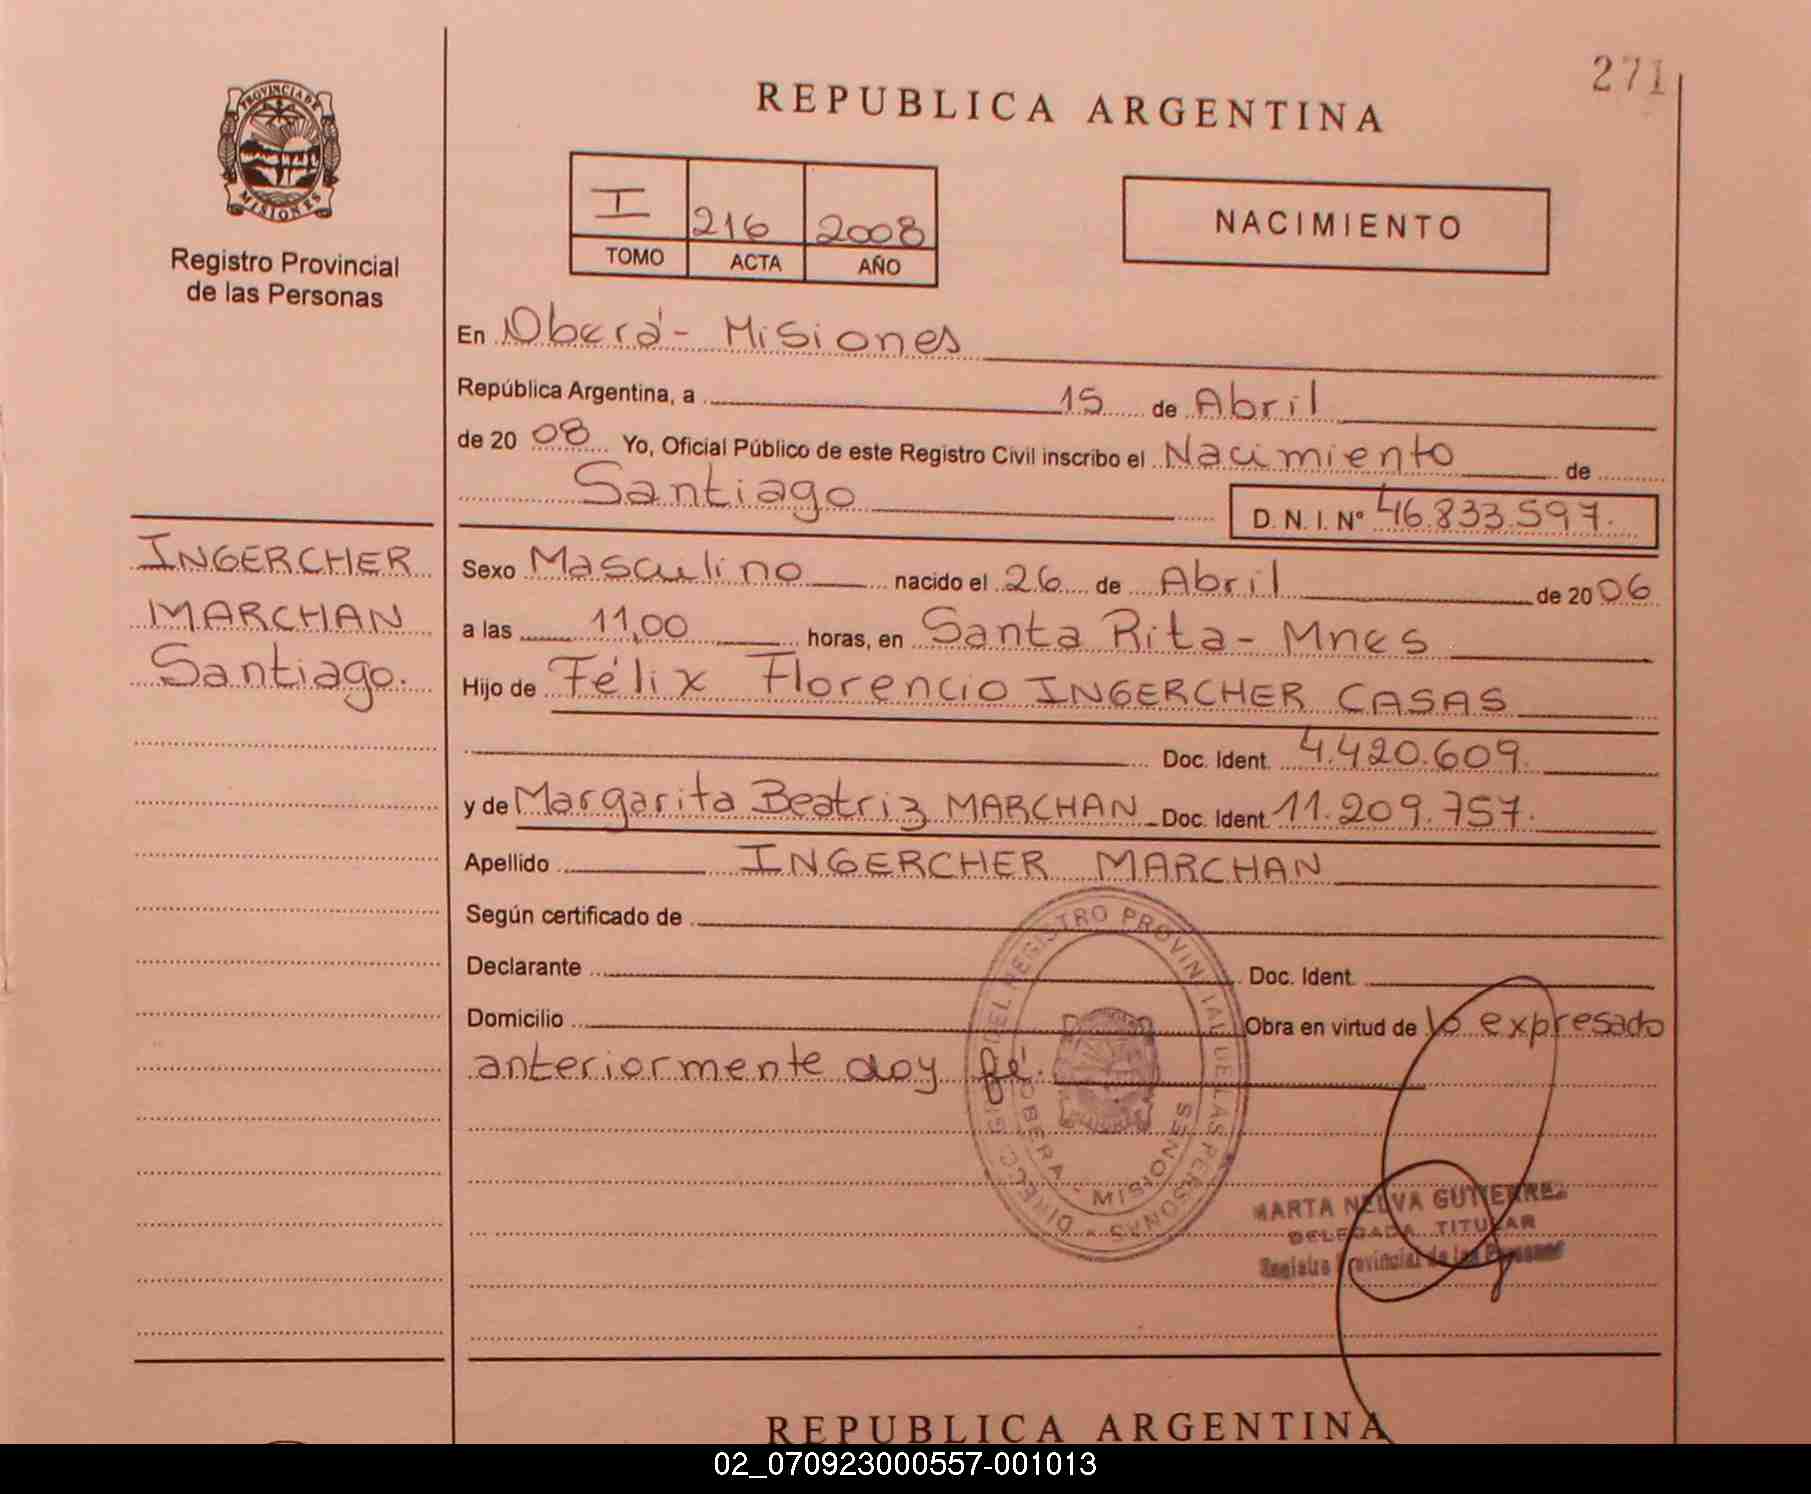 271
PROVINCIA DE
MISIONES
Registro Provincial
de las Personas
REPUBLICA ARGENTINA
I 216 2008
TOMO ACTA AÑO
NACIMIENTO
En Oberá - Misiones
República Argentina, a 15 de Abril
de 20 08 Yo, Oficial Público de este Registro Civil inscribo el Nacimiento de
Santiago D. N. I. Nº 46.833.597.
INGERCHER
MARCHAN
Santiago.
Sexo Masculino nacido el 26 de Abril de 20 06
a las 11,00 horas, en Santa Rita - Mnes
Hijo de Félix Florencio INGERCHER CASAS
Doc. Ident. 4.420.609.
y de Margarita Beatriz MARCHAN Doc. Ident. 11.209.757.
Apellido INGERCHER MARCHAN
Según certificado de
Declarante Doc. Ident.
Domicilio Obra en virtud de lo expresado
anteriormente doy fé.
DIRECCION DEL REGISTRO PROVINCIAL DE LAS PERSONAS
OBERA - MISIONES
MARTA NELVA GUTIERREZ
DELEGADA TITULAR
Registro Provincial de las Personas
REPUBLICA ARGENTINA
02_070923000557-001013